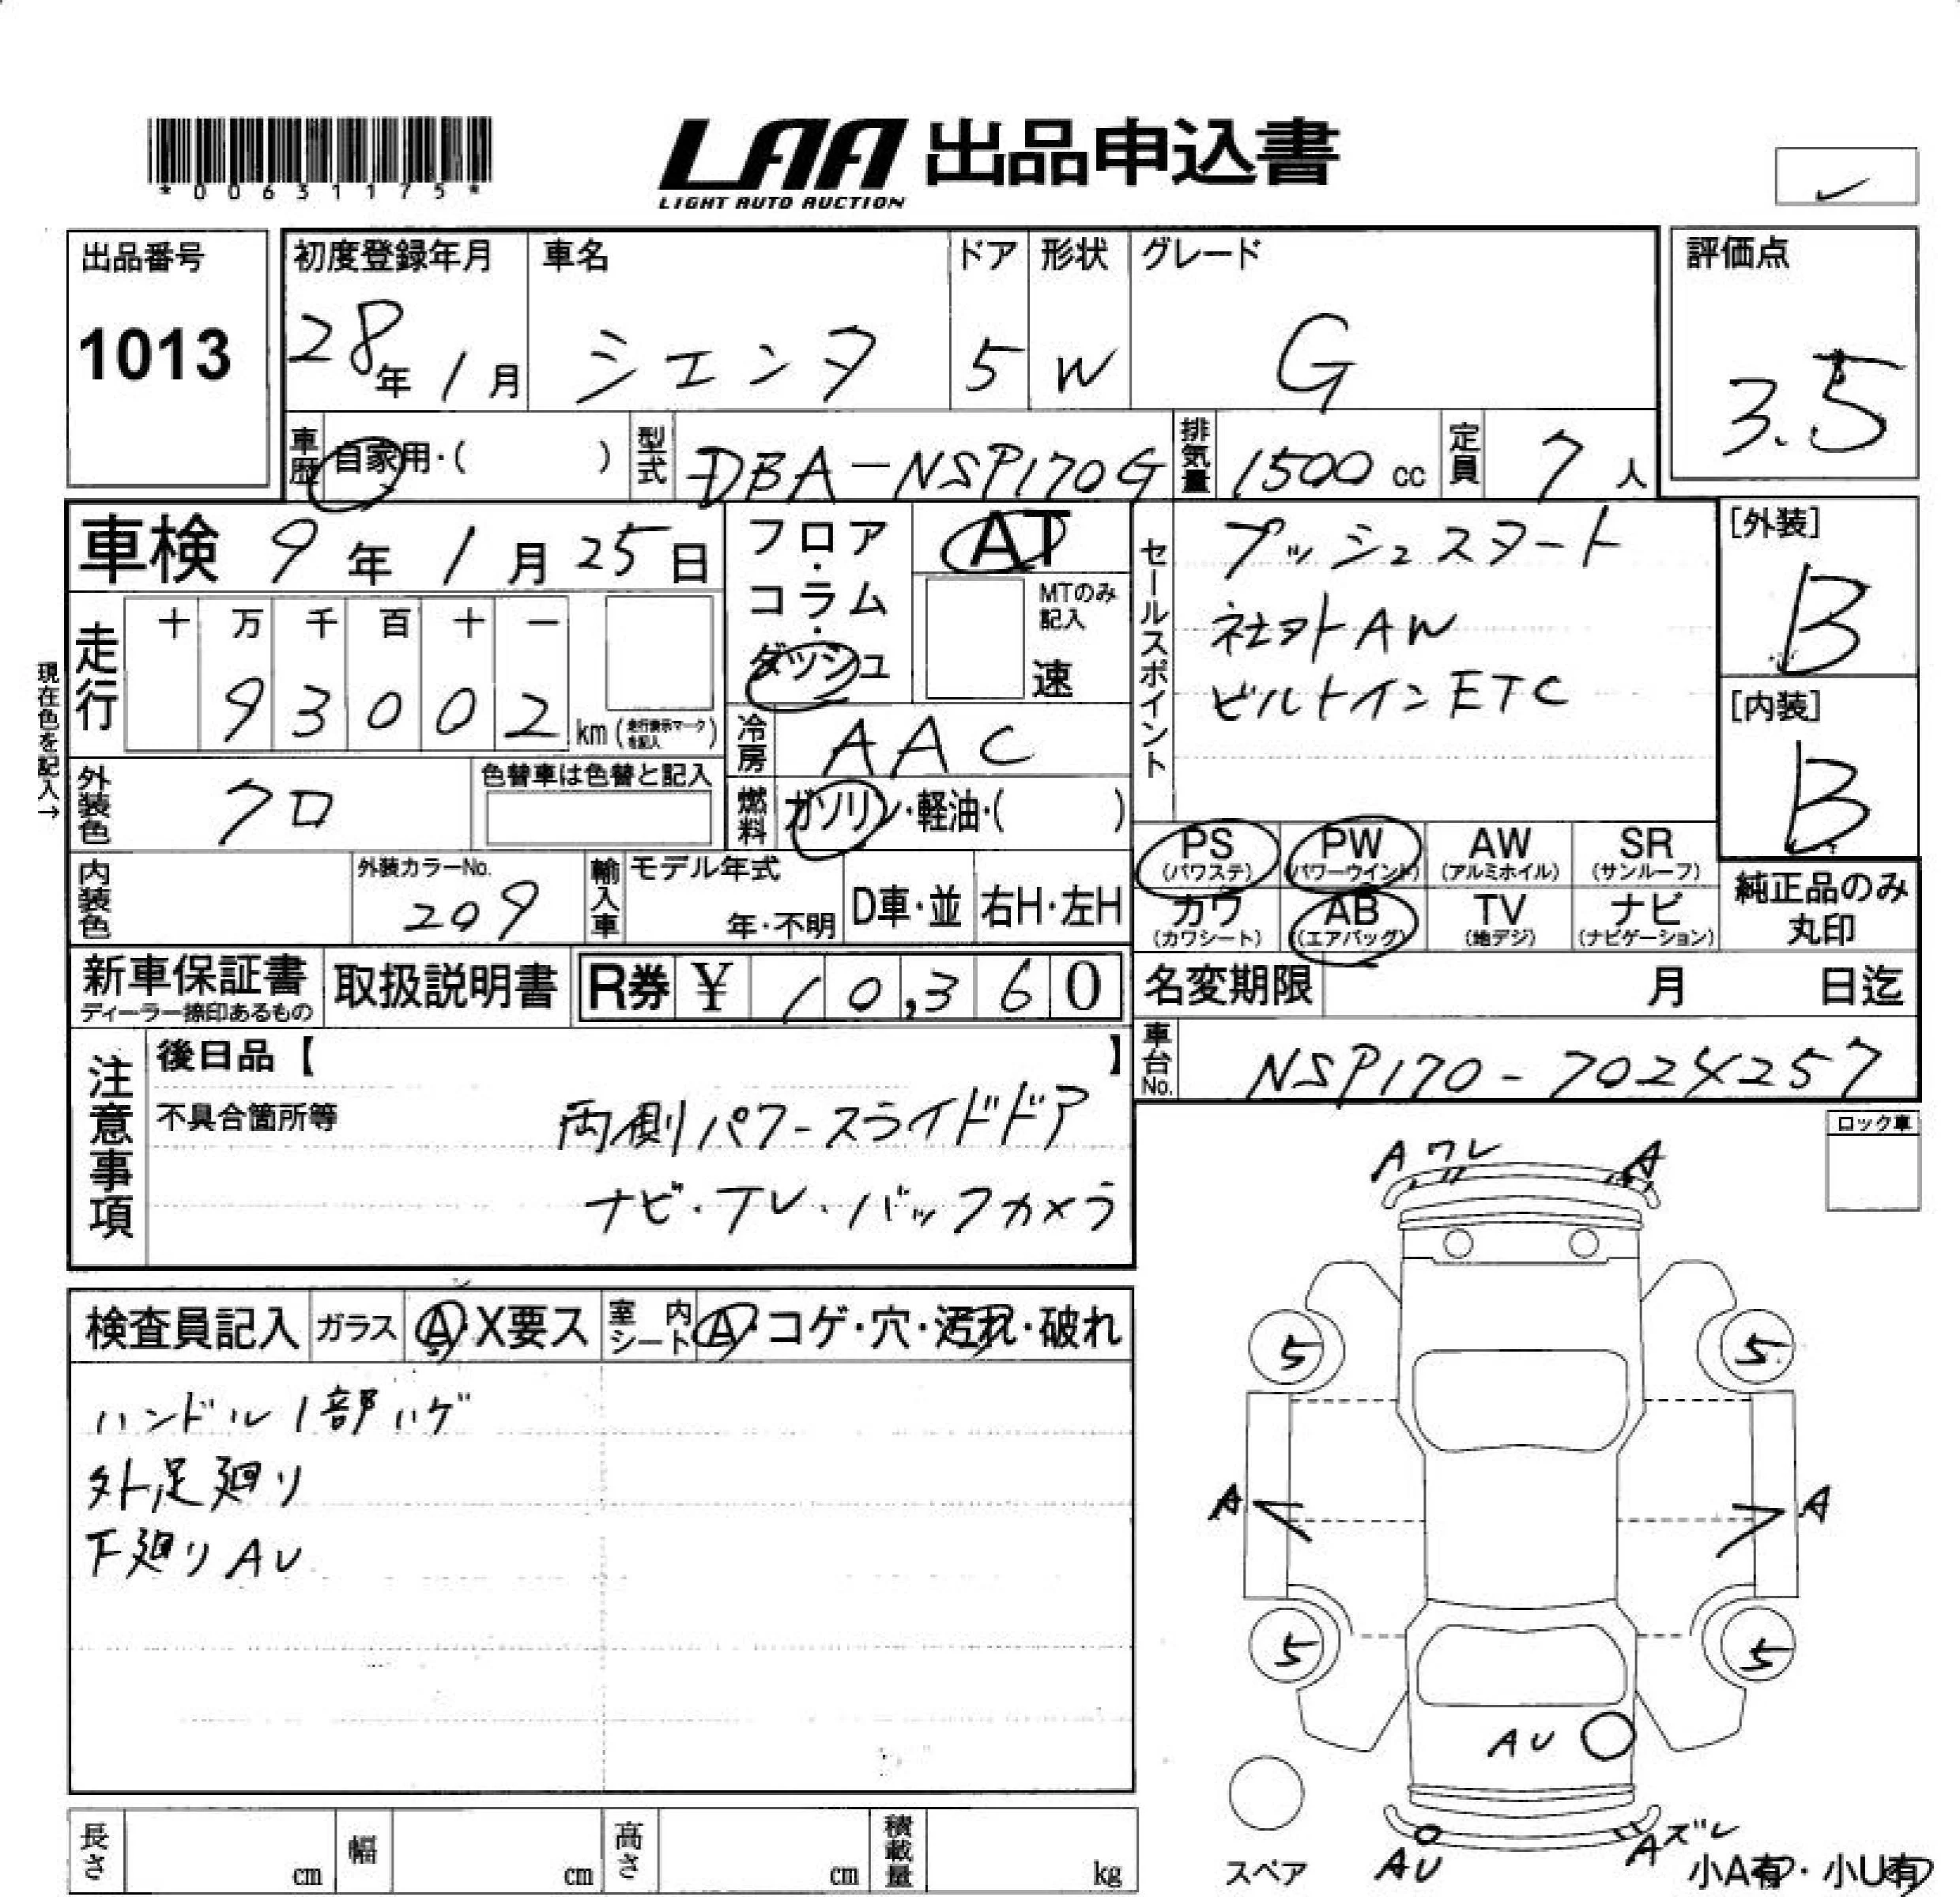 *00631175*
LAA 出品申込書
LIGHT AUTO AUCTION
出品番号
1013
初度登録年月
28年1月
車名
シエンタ
ドア
5
形状
W
グレード
G
評価点
3.5
車歴
自家用・( )
型式
DBA-NSP170G
排気量
1500 cc
定員
7 人
車検 9年1月25日
フロア・コラム・ダッシュ
AT
MTのみ記入
速
セールスポイント
プッシュスタート
社外AW
ビルトインETC
[外装]
B
[内装]
B
現在色を記入→
走行
十 万 千 百 十 一
9 3 0 0 2 km(走行表示マークを記入)
冷房
AAC
外装色
クロ
色替車は色替と記入
燃料
ガソリン・軽油・( )
PS (パワステ)
PW (パワーウインド)
AW (アルミホイル)
SR (サンルーフ)
カワ (カワシート)
AB (エアバッグ)
TV (地デジ)
ナビ (ナビゲーション)
純正品のみ
丸印
内装色
外装カラーNo.
209
輸入車
モデル年式
年・不明
D車・並
右H・左H
新車保証書
ディーラー捺印あるもの
取扱説明書
R券 ¥ 10,360
名変期限 月 日迄
車台No.
NSP170-7024257
注意事項
後日品【 】
不具合箇所等
両側パワースライドドア
ナビ・TV・バックカメラ
ロック車
検査員記入
ガラス
A・X要ス
室内シート
A・コゲ・穴・汚れ・破れ
ハンドル1部ハゲ
外足廻り
下廻りAU
A ワレ
A
5
5
A
A
5
5
AU
AU
Aズレ
スペア
小A有・小U有
長さ cm
幅 cm
高さ cm
積載量 kg